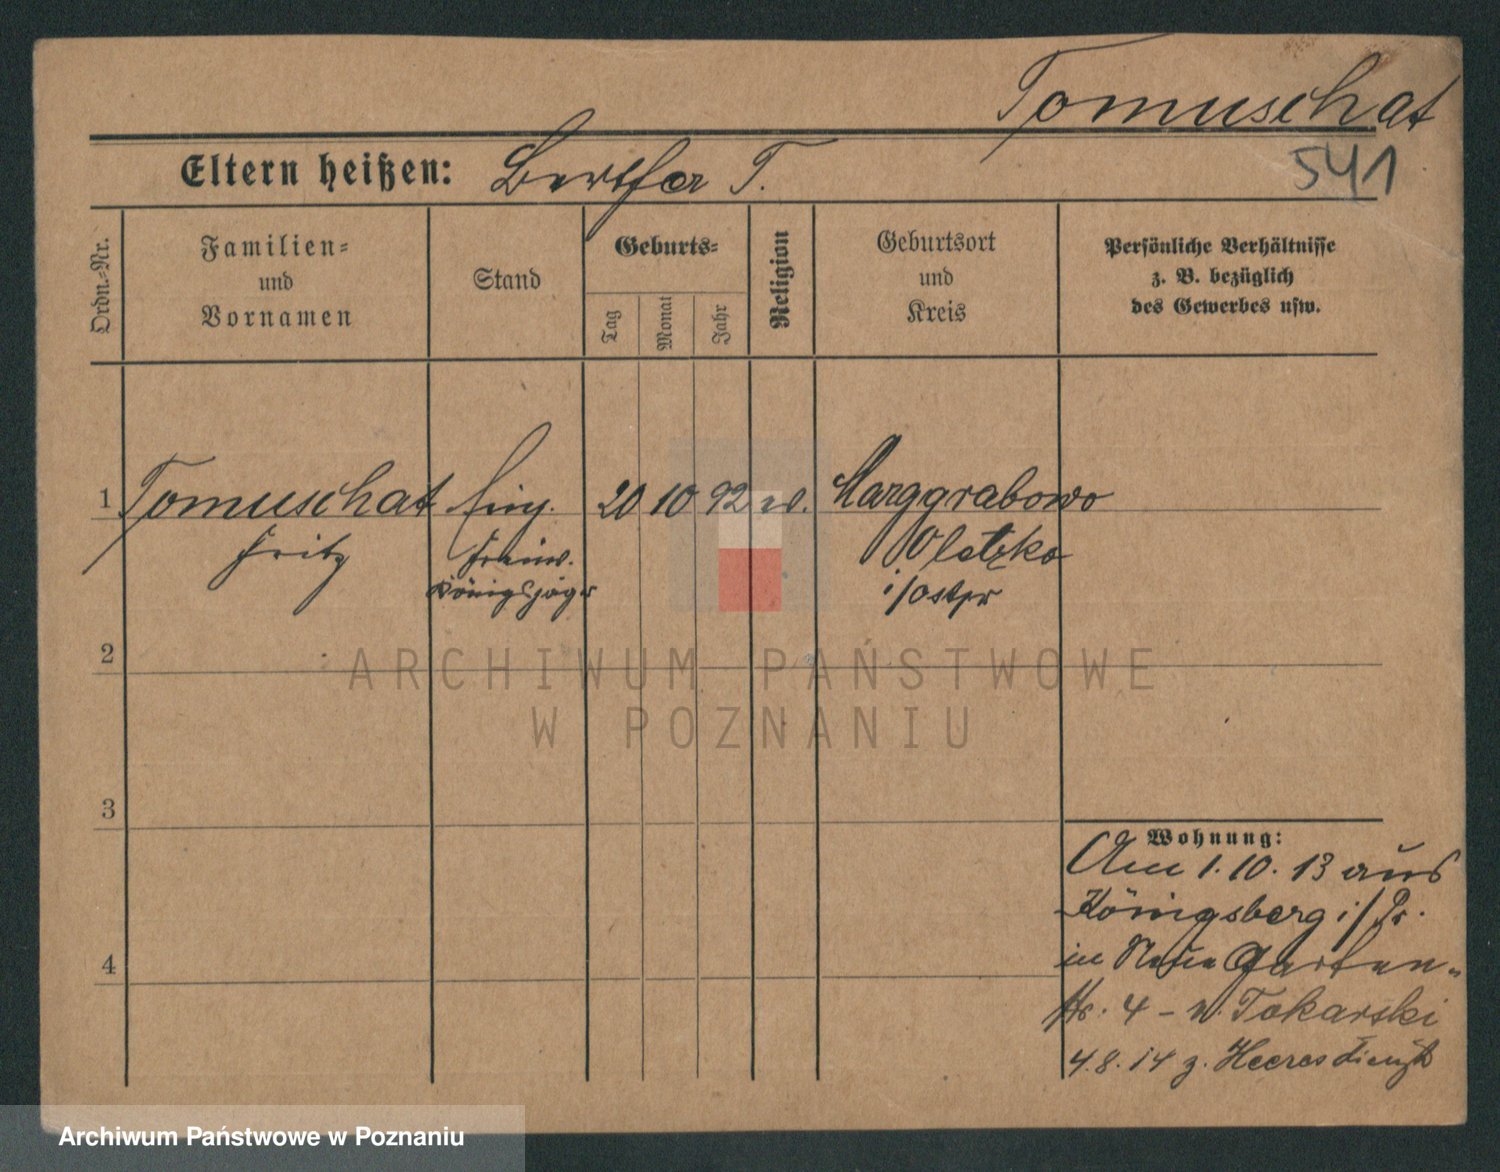 Tomuschat
541
Eltern heißen: Bertha T.
Ordn.-Nr.
Familien-
und
Vornamen
Stand
Geburts-
Tag
Monat
Jahr
Religion
Geburtsort
und
Kreis
Persönliche Verhältnisse
z. B. bezüglich
des Gewerbes usw.
1 Tomuschat Einj. 20 10 92 ev. Marggrabowo
Fritz Freiw. Oletzko
Königsjäger i/Ostpr
2
ARCHIWUM PAŃSTWOWE
W POZNANIU
3
Wohnung:
Am 1.10.13 aus
Königsberg i/Pr.
4
in Neue Garten-
str. 4 - b. Tokarski
4.8.14 z. Heeresdienst
Archiwum Państwowe w Poznaniu